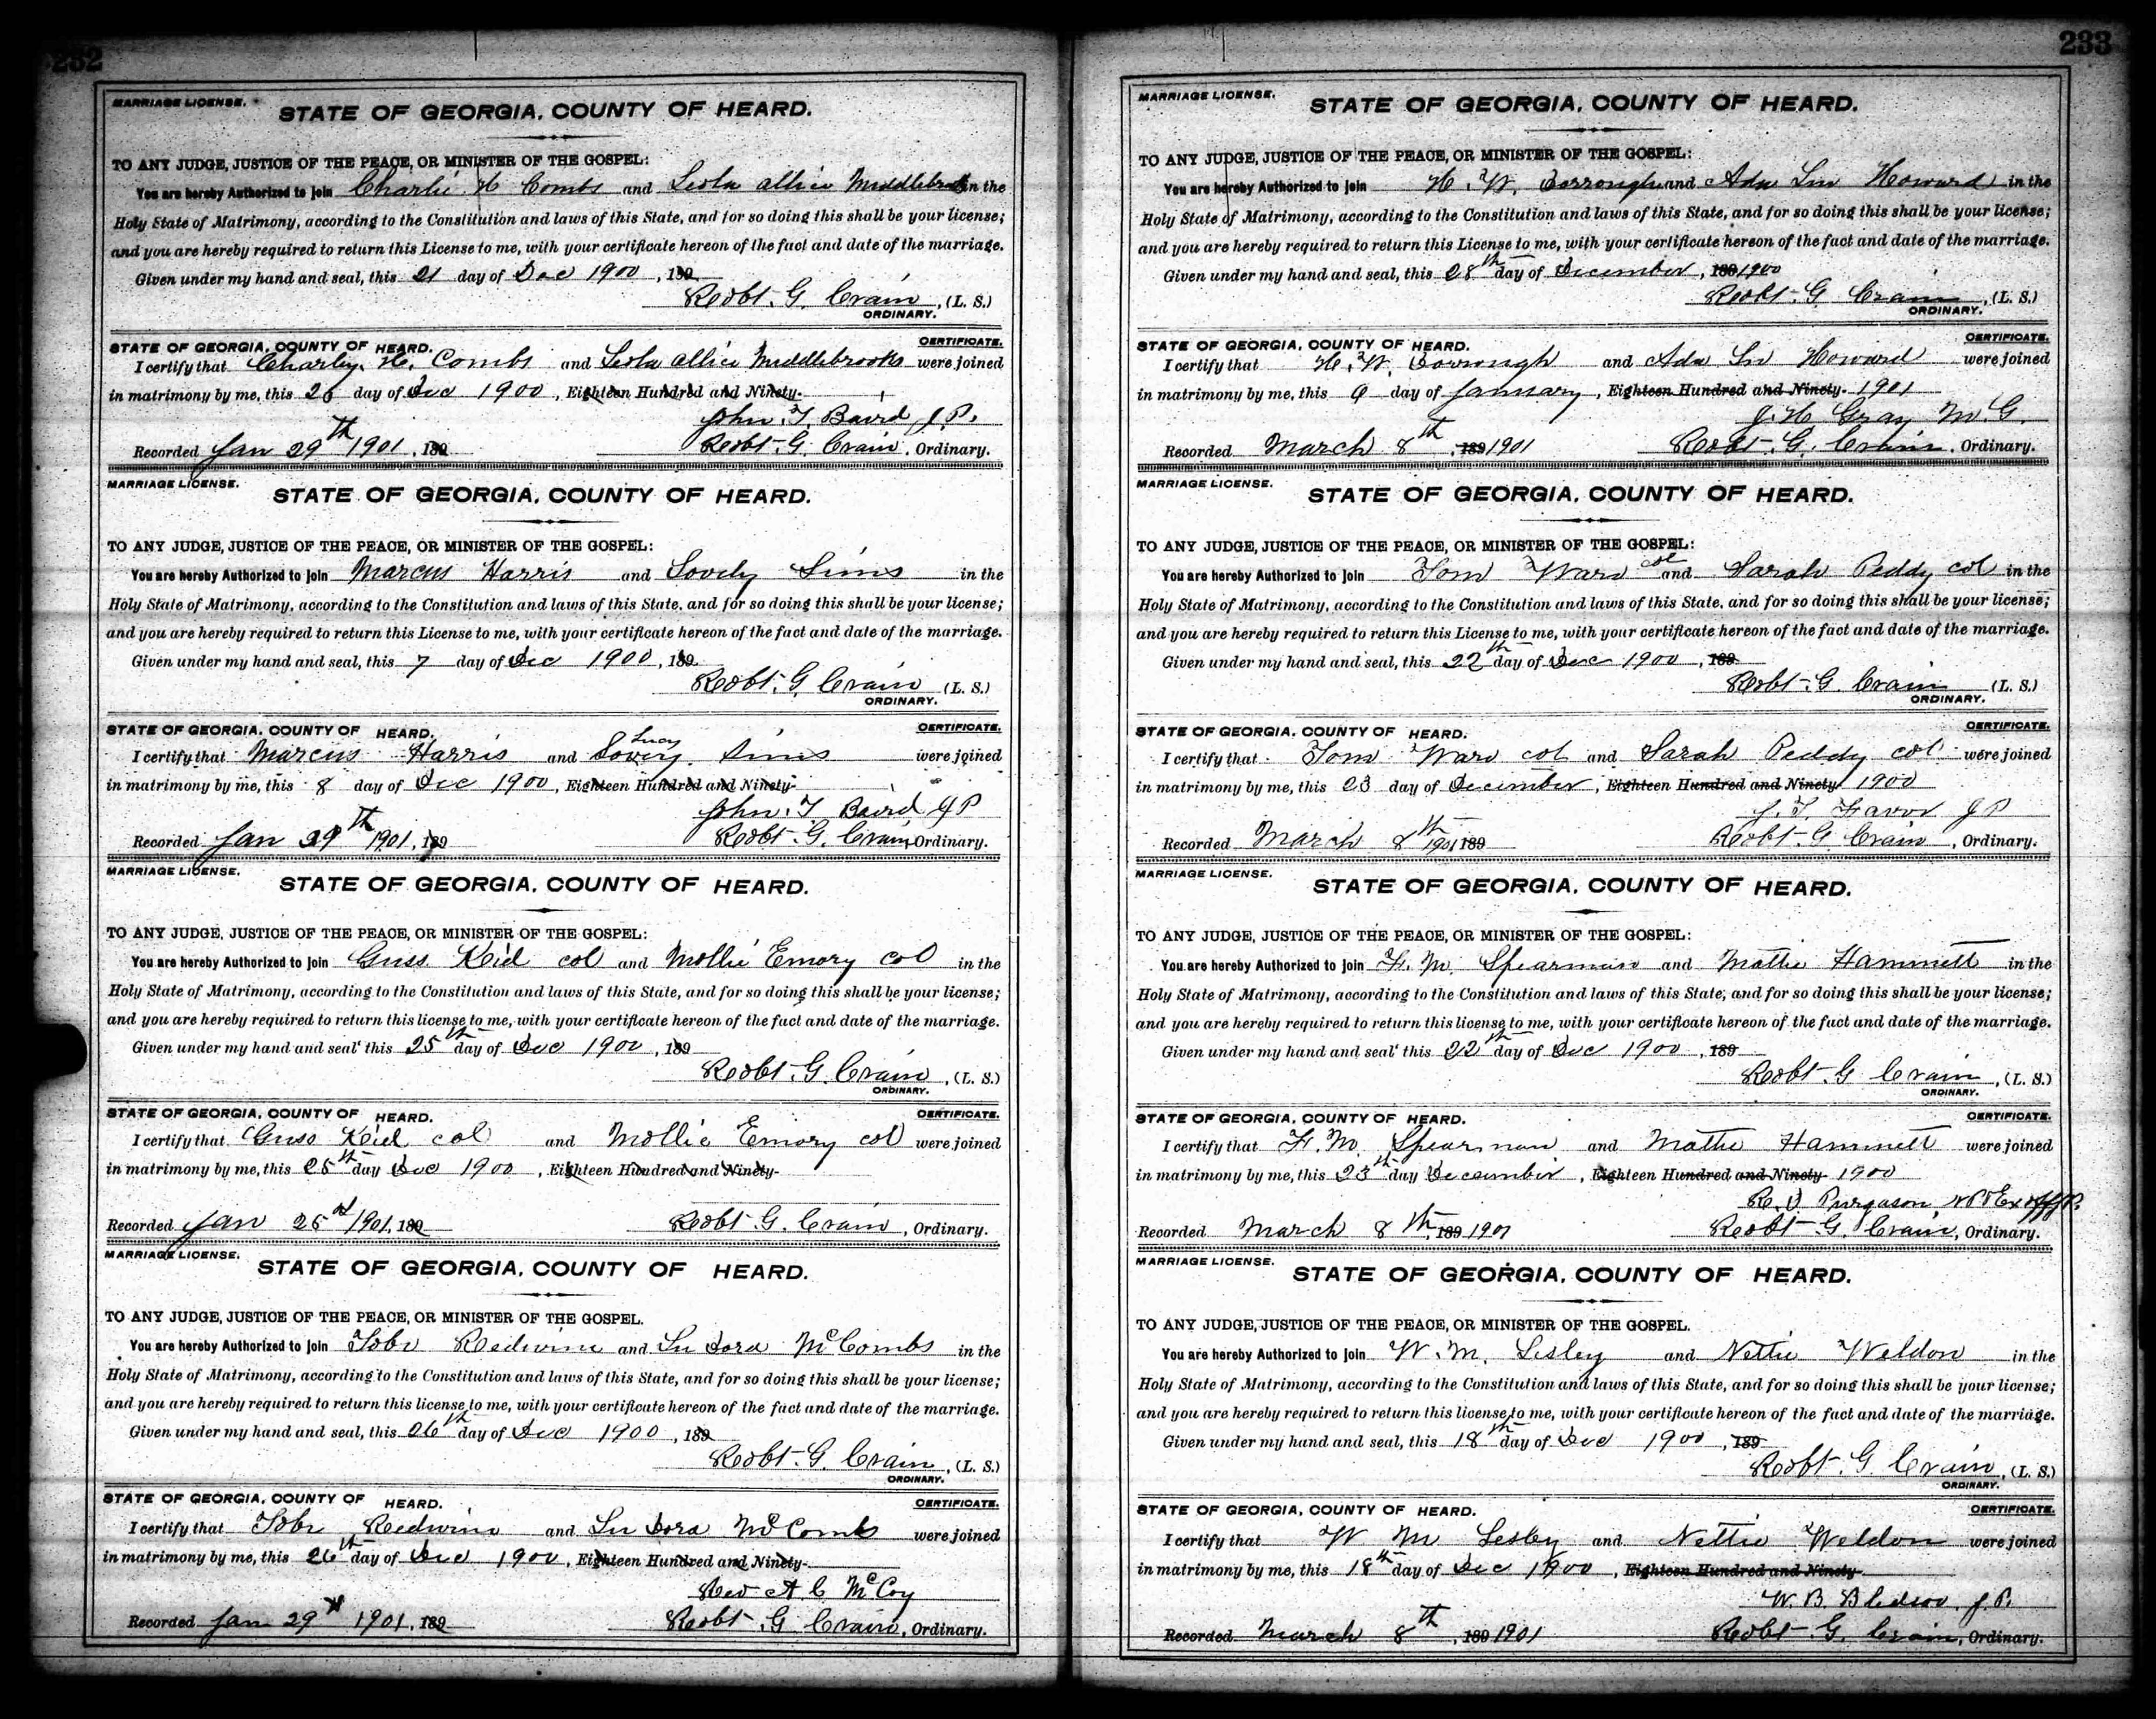 232
MARRIAGE LICENSE.
STATE OF GEORGIA, COUNTY OF HEARD.
TO ANY JUDGE, JUSTICE OF THE PEACE, OR MINISTER OF THE GOSPEL:
You are hereby Authorized to join Charlie H Combs and Leola allice Middlebrooks in the
Holy State of Matrimony, according to the Constitution and laws of this State, and for so doing this shall be your license;
and you are hereby required to return this License to me, with your certificate hereon of the fact and date of the marriage.
Given under my hand and seal, this 21 day of Dec 1900, 189
Robt. G. Crain, (L. S.)
ORDINARY.
STATE OF GEORGIA, COUNTY OF HEARD. CERTIFICATE.
I certify that Charley H. Combs and Leola allice Middlebrooks were joined
in matrimony by me, this 26 day of Dec 1900, Eighteen Hundred and Ninety-
John. T. Baird J.P.
Recorded Jan 29th 1901, 189 Robt. G. Crain, Ordinary.
MARRIAGE LICENSE.
STATE OF GEORGIA, COUNTY OF HEARD.
TO ANY JUDGE, JUSTICE OF THE PEACE, OR MINISTER OF THE GOSPEL:
You are hereby Authorized to join Marcus Harris and Lovely Sims in the
Holy State of Matrimony, according to the Constitution and laws of this State, and for so doing this shall be your license;
and you are hereby required to return this License to me, with your certificate hereon of the fact and date of the marriage.
Given under my hand and seal, this 7 day of Dec 1900, 189
Robt. G. Crain (L. S.)
ORDINARY.
STATE OF GEORGIA, COUNTY OF HEARD. CERTIFICATE.
Lucy
I certify that Marcus Harris and Sims were joined
in matrimony by me, this 8 day of Dec 1900, Eighteen Hundred and Ninety-
John. T Baird JP
Recorded Jan 29th 1901, 189 Robt. G. Crain, Ordinary.
MARRIAGE LICENSE.
STATE OF GEORGIA, COUNTY OF HEARD.
TO ANY JUDGE, JUSTICE OF THE PEACE, OR MINISTER OF THE GOSPEL:
You are hereby Authorized to join Guss Keid col and Mollie Emory col in the
Holy State of Matrimony, according to the Constitution and laws of this State, and for so doing this shall be your license;
and you are hereby required to return this license to me, with your certificate hereon of the fact and date of the marriage.
Given under my hand and seal this 25th day of Dec 1900, 189
Robt. G. Crain, (L. S.)
ORDINARY.
STATE OF GEORGIA, COUNTY OF HEARD. CERTIFICATE.
I certify that Guss Keid col and Mollie Emory col were joined
in matrimony by me, this 25th day Dec 1900, Eighteen Hundred and Ninety-
Recorded Jan 1901, 189 Robt. G. Crain, Ordinary.
MARRIAGE LICENSE.
STATE OF GEORGIA, COUNTY OF HEARD.
TO ANY JUDGE, JUSTICE OF THE PEACE, OR MINISTER OF THE GOSPEL.
You are hereby Authorized to join Tobe Redwine and Lu Dora McCombs in the
Holy State of Matrimony, according to the Constitution and laws of this State, and for so doing this shall be your license;
and you are hereby required to return this license to me, with your certificate hereon of the fact and date of the marriage.
Given under my hand and seal, this 26th day of Dec 1900, 189
Robt. G. Crain, (L. S.)
ORDINARY.
STATE OF GEORGIA, COUNTY OF HEARD. CERTIFICATE.
I certify that Tobe Redwine and Lu Dora McCombs were joined
in matrimony by me, this 26th day of Dec 1900, Eighteen Hundred and Ninety-
Rev A. C McCoy
Recorded Jan 29 1901, 189 Robt. G Crain, Ordinary.
233
MARRIAGE LICENSE.
STATE OF GEORGIA, COUNTY OF HEARD.
TO ANY JUDGE, JUSTICE OF THE PEACE, OR MINISTER OF THE GOSPEL:
You are hereby Authorized to join H. W. Borrough and Ada Lu Howard in the
Holy State of Matrimony, according to the Constitution and laws of this State, and for so doing this shall be your license;
and you are hereby required to return this License to me, with your certificate hereon of the fact and date of the marriage.
Given under my hand and seal, this 28th day of December, 189 1900
Robt. G Crain, (L. S.)
ORDINARY.
STATE OF GEORGIA, COUNTY OF HEARD. CERTIFICATE.
I certify that H. W. Borrough and Ada Lu Howard were joined
in matrimony by me, this 9 day of January, Eighteen Hundred and Ninety- 1901
J. H Gray M. G.
Recorded March 8th, 189 1901 Robt. G. Crain, Ordinary.
MARRIAGE LICENSE.
STATE OF GEORGIA, COUNTY OF HEARD.
TO ANY JUDGE, JUSTICE OF THE PEACE, OR MINISTER OF THE GOSPEL:
You are hereby Authorized to join Tom Ward col and Sarah Peddy col in the
Holy State of Matrimony, according to the Constitution and laws of this State, and for so doing this shall be your license;
and you are hereby required to return this License to me, with your certificate hereon of the fact and date of the marriage.
Given under my hand and seal, this 22th day of Dec 1900, 189
Robt. G Crain (L. S.)
ORDINARY.
STATE OF GEORGIA, COUNTY OF HEARD. CERTIFICATE.
I certify that Tom Ward col and Sarah Peddy col were joined
in matrimony by me, this 23 day of December, Eighteen Hundred and Ninety 1900
J. T. Favor JP
Recorded March 8th 1901 189 Robt. G Crain, Ordinary.
MARRIAGE LICENSE.
STATE OF GEORGIA, COUNTY OF HEARD.
TO ANY JUDGE, JUSTICE OF THE PEACE, OR MINISTER OF THE GOSPEL:
You are hereby Authorized to join H. M. Spearman and Mattie Hammett in the
Holy State of Matrimony, according to the Constitution and laws of this State, and for so doing this shall be your license;
and you are hereby required to return this license to me, with your certificate hereon of the fact and date of the marriage.
Given under my hand and seal this 22th day of Dec 1900, 189
Robt. G Crain, (L. S.)
ORDINARY.
STATE OF GEORGIA, COUNTY OF HEARD. CERTIFICATE.
I certify that H. M. Spearman and Mattie Hammett were joined
in matrimony by me, this 23th day December, Eighteen Hundred and Ninety- 1900
R. D Purgason NP & Ex off J.P.
Recorded March 8th, 189 1901 Robt. G. Crain, Ordinary.
MARRIAGE LICENSE.
STATE OF GEORGIA, COUNTY OF HEARD.
TO ANY JUDGE, JUSTICE OF THE PEACE, OR MINISTER OF THE GOSPEL.
You are hereby Authorized to join W. M. Lesley and Nettie Weldon in the
Holy State of Matrimony, according to the Constitution and laws of this State, and for so doing this shall be your license;
and you are hereby required to return this license to me, with your certificate hereon of the fact and date of the marriage.
Given under my hand and seal, this 18th day of Dec 1900, 189
Robt. G. Crain, (L. S.)
ORDINARY.
STATE OF GEORGIA, COUNTY OF HEARD. CERTIFICATE.
I certify that W M Lesley and Nettie Weldon were joined
in matrimony by me, this 18th day of Dec 1900, Eighteen Hundred and Ninety-
W. B. Bledsoe, J. P.
Recorded March 8th, 189 1901 Robt. G. Crain, Ordinary.